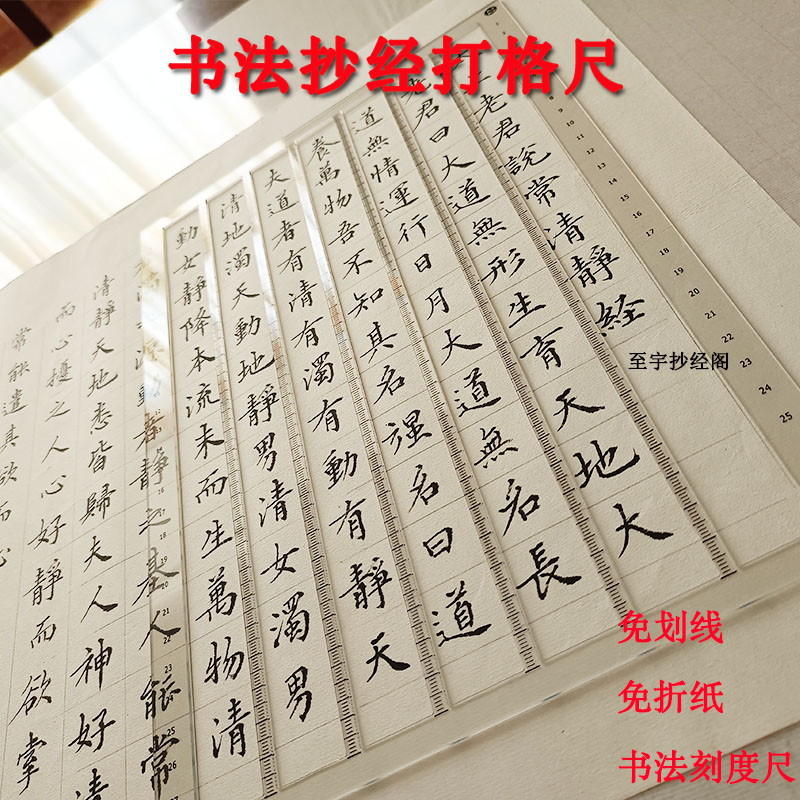 书法抄经打格尺
上老君說常清靜経
老君曰大道無形生育天地大
道無情運行日月大道無名長
養萬物吾不知其名强名曰道
夫道者有清有濁有動有靜天
清地濁天動地靜男清女濁男
動女靜降本流末而生萬物清
者濁之源動者靜之基人能常
清靜天地悉皆歸夫人神好清
而心擾之人心好靜而欲牽
常能遣其欲而心
至宇抄经阁
免划线
免折纸
书法刻度尺